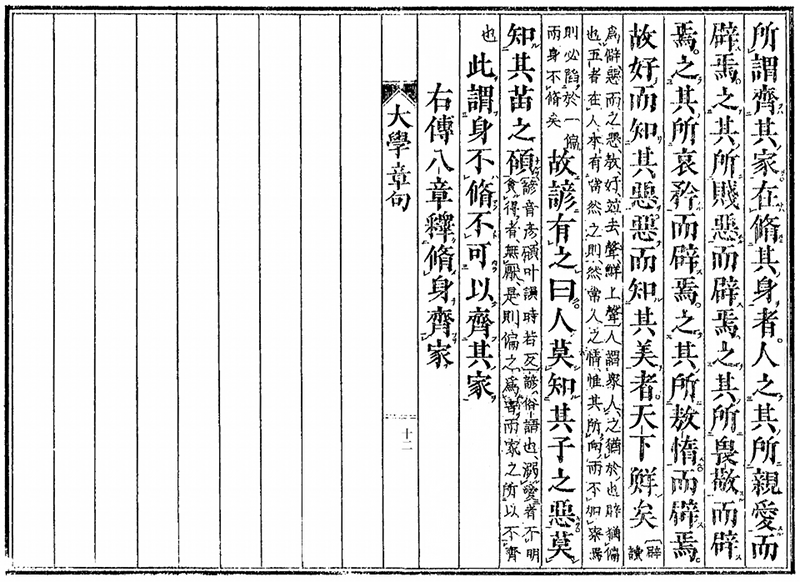 所謂齊其家在脩其身者。人之其所親愛而
辟焉。之其所賤惡而辟焉。之其所畏敬而辟
焉。之其所哀矜而辟焉。之其所敖惰而辟焉。
故好而知其惡惡而知其美者。天下鮮矣辟讀
為僻惡而之惡敖好並去聲鮮上聲人謂衆人之猶於也辟猶偏
也五者在人本有當然之則然常人之情惟其所向而不加察焉
則必陷於一偏而身不脩矣故諺有之曰。人莫知其子之惡莫
知其苗之碩諺音彥碩叶韻時若反諺俗語也溺愛者不明
貪得者無厭是則偏之為害而家之所以不齊
也此謂身不脩不可以齊其家
右傳八章釋脩身齊家
大學章句
十二